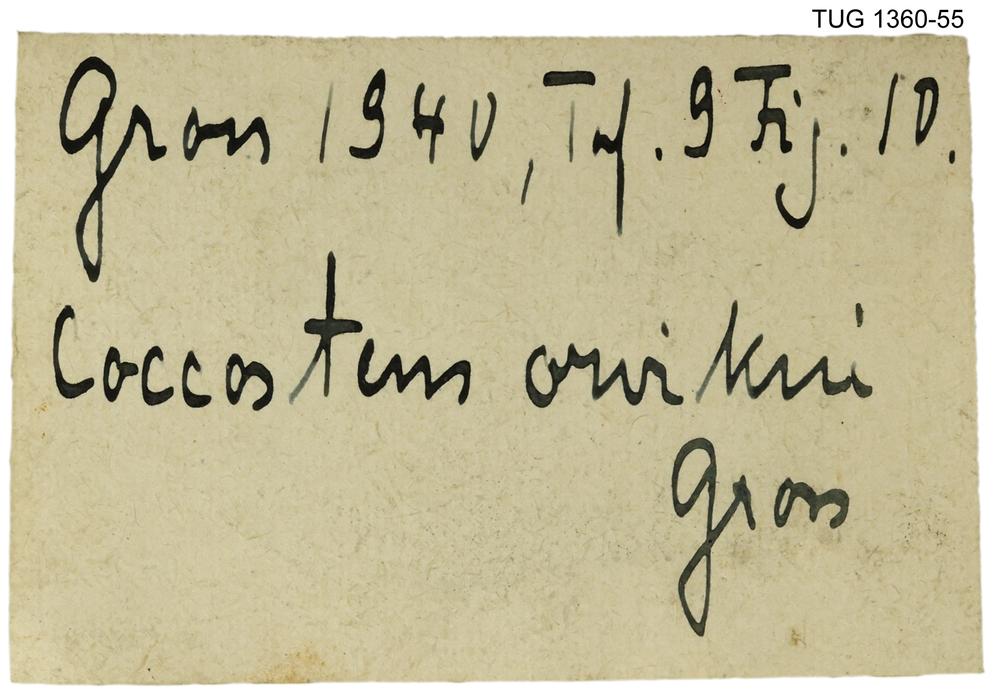 TUG 1360-55
Gross 1940, Taf. 9 Fig. 10.
Coccosteus orvikui
Gross